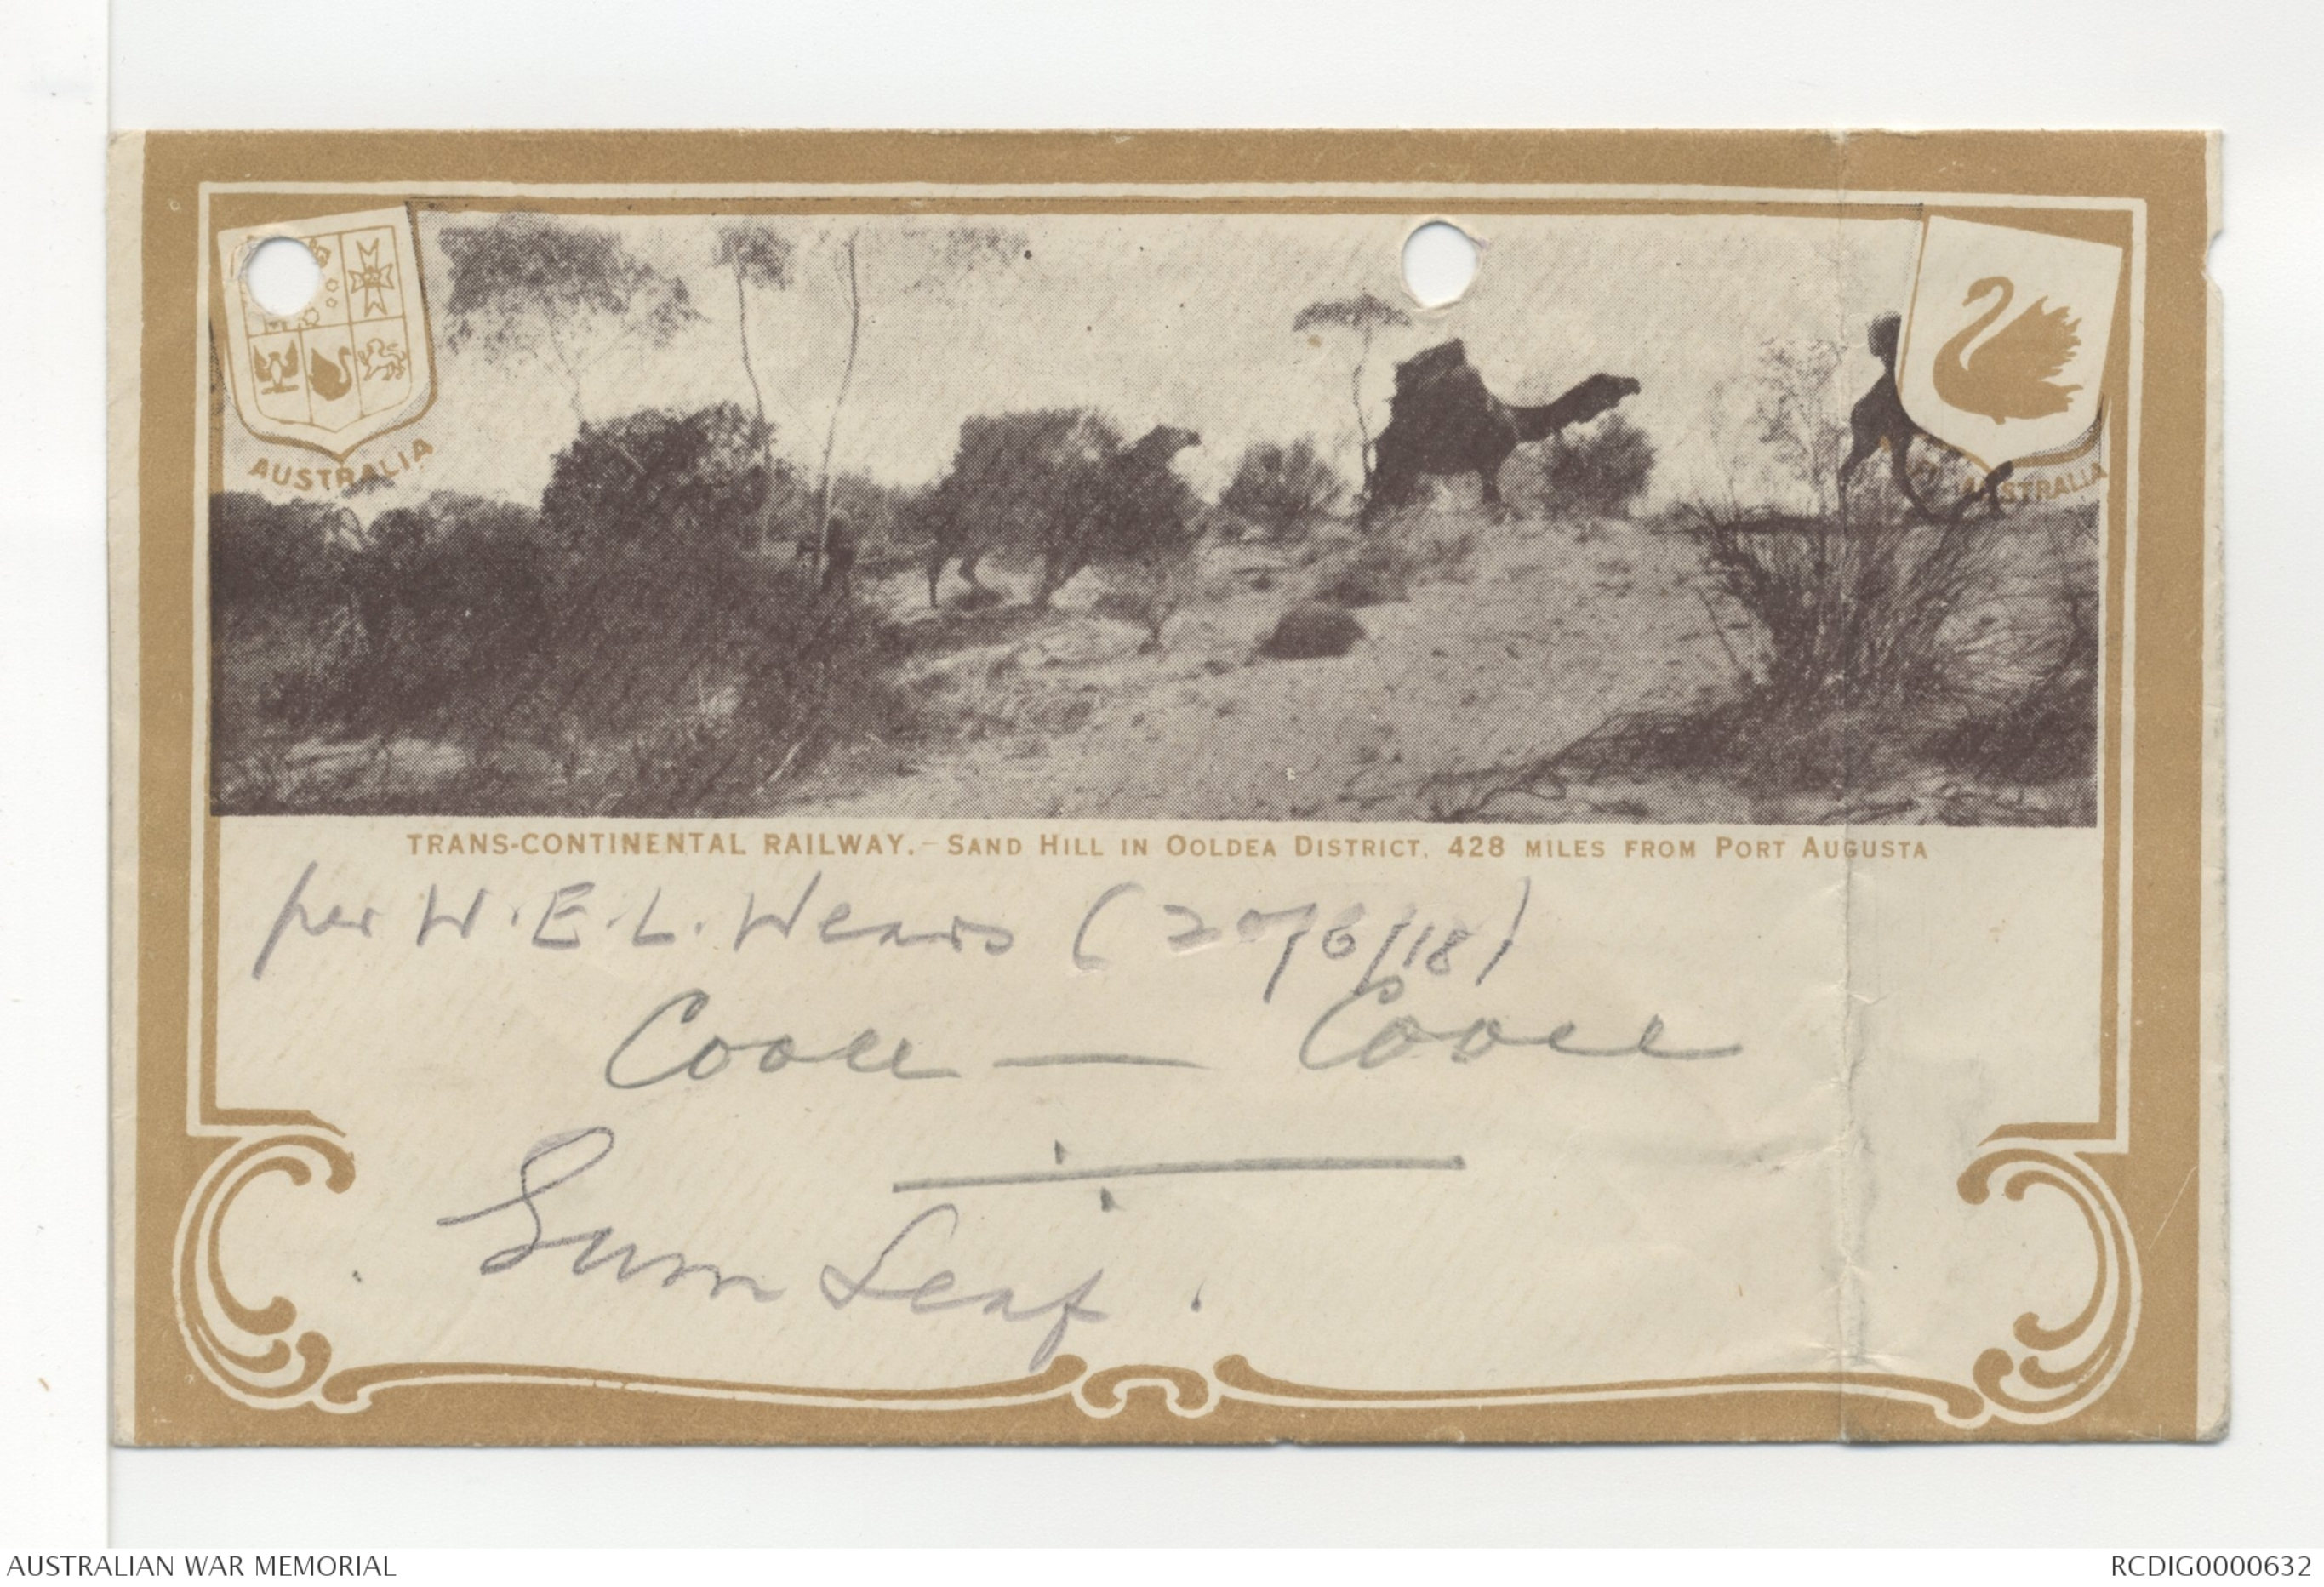 AUSTRALIA
AUSTRALIA
TRANS-CONTINENTAL RAILWAY.- SAND HILL IN OOLDEA DISTRICT, 428 MILES FROM PORT AUGUSTA
per W.E.L. Wears (20/6/18)
Cooee — Cooee
Gum Leaf.
AUSTRALIAN WAR MEMORIAL
RCDIG0000632